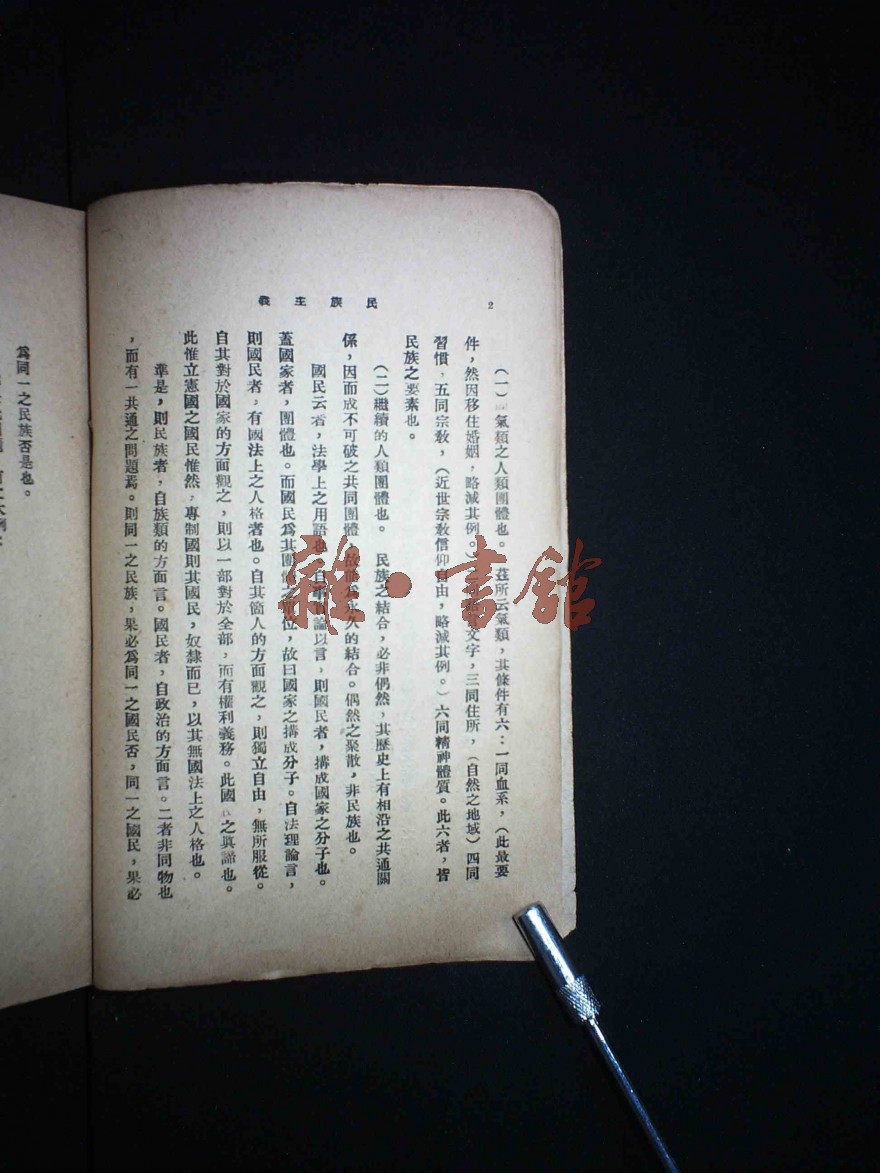 2
民族主義
（一）氣類之人類團體也。茲所云氣類，其條件有六：一同血系，（此最要
件，然因移住婚姻，略減其例。）文字，三同住所，（自然之地域）四同
習慣，五同宗教，（近世宗教信仰自由，略減其例。）六同精神體質。此六者，皆
民族之要素也。
（二）繼續的人類團體也。　民族之結合，必非偶然，其歷史上有相沿之共通關
係，因而成不可破之共同團體，故能爲永久的結合。偶然之聚散，非民族也。
國民云者，法學上之用語也。自論以言，則國民者，搆成國家之分子也。
蓋國家者，團體也。而國民爲其團體之單位，故曰國家之搆成分子。自法理論言，
則國民者，有國法上之人格者也。自其箇人的方面觀之，則獨立自由，無所服從。
自其對於國家的方面觀之，則以一部對於全部，而有權利義務。此國之眞諦也。
此惟立憲國之國民惟然，專制國則其國民，奴隸而已，以其無國法上之人格也。
準是，則民族者，自族類的方面言。國民者，自政治的方面言。二者非同物也
，而有一共通之問題焉。則同一之民族，果必爲同一之國民否，同一之國民，果必
爲同一之民族否是也。
雜·書館